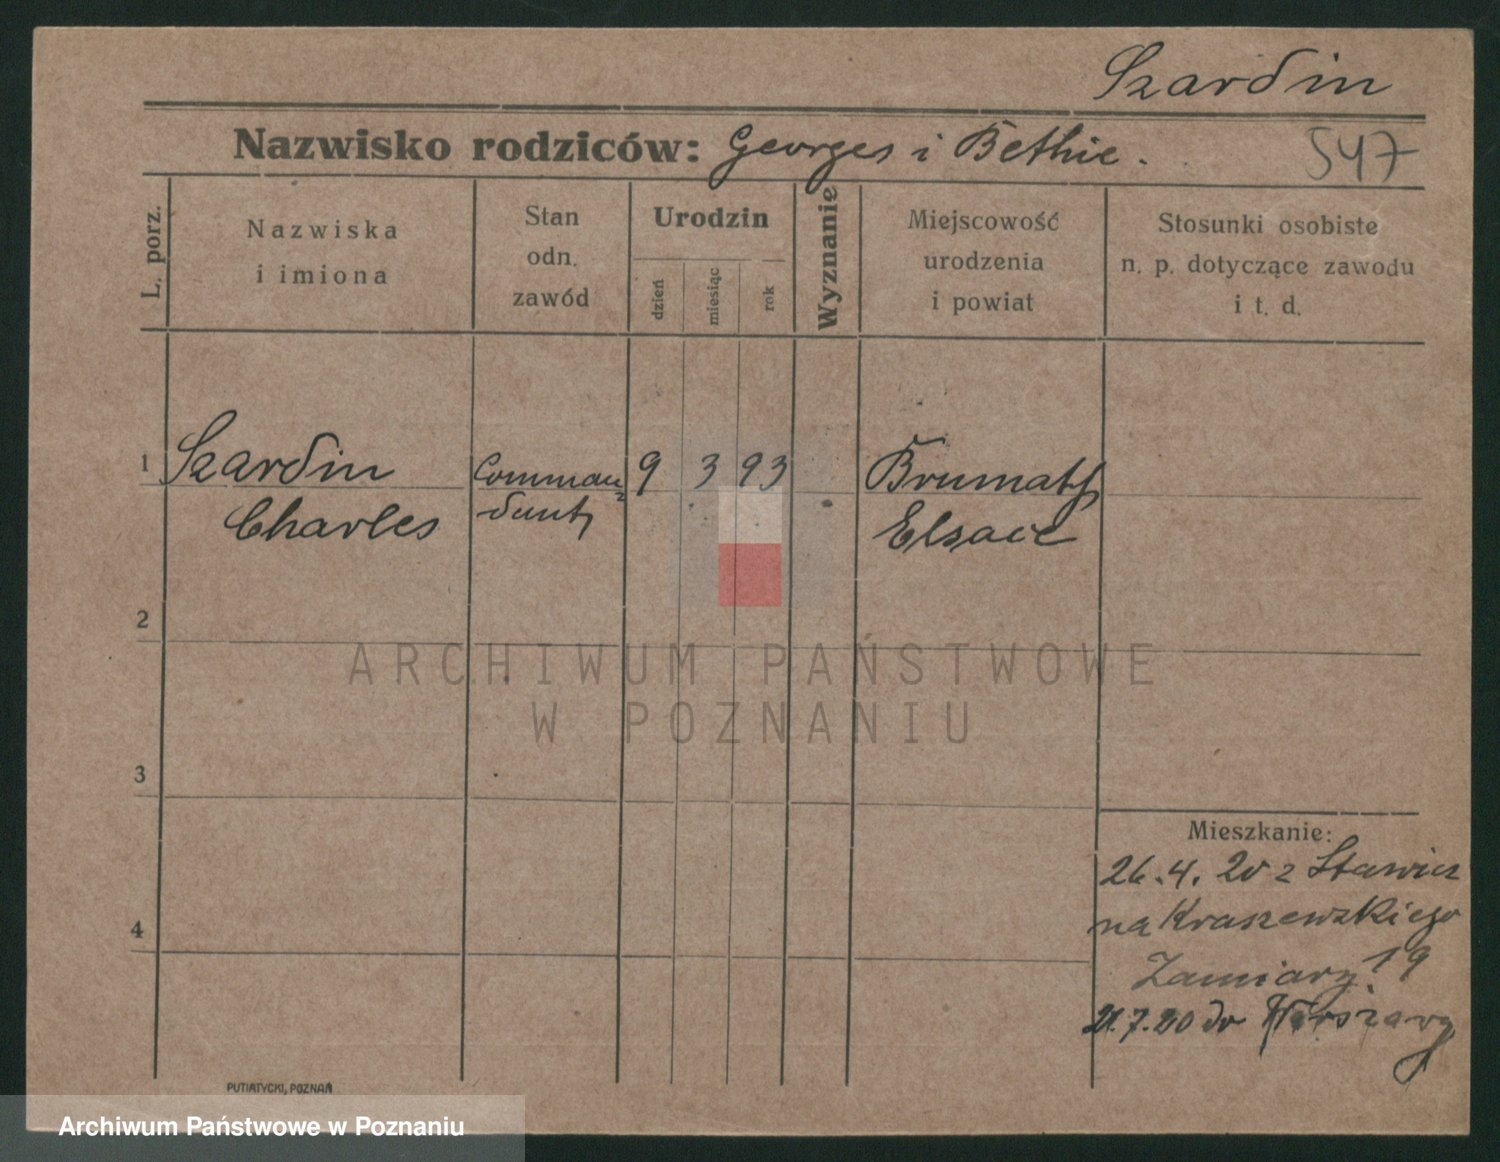 Szardin
Nazwisko rodziców: Georges i Bethie.
547
L. porz.
Nazwiska
i imiona
Stan
odn.
zawód
Urodzin
dzień
miesiąc
rok
Wyznanie
Miejscowość
urodzenia
i powiat
Stosunki osobiste
n. p. dotyczące zawodu
i t. d.
1 Szardin Comman- 9 3 93 Brumath
Charles dant Elsace
2
ARCHIWUM PAŃSTWOWE
W POZNANIU
3
Mieszkanie:
26.4.20 z
4
na Kraszewskiego
19
21.7.20 do Warszawy
PUTIATYCKI, POZNAŃ
Archiwum Państwowe w Poznaniu